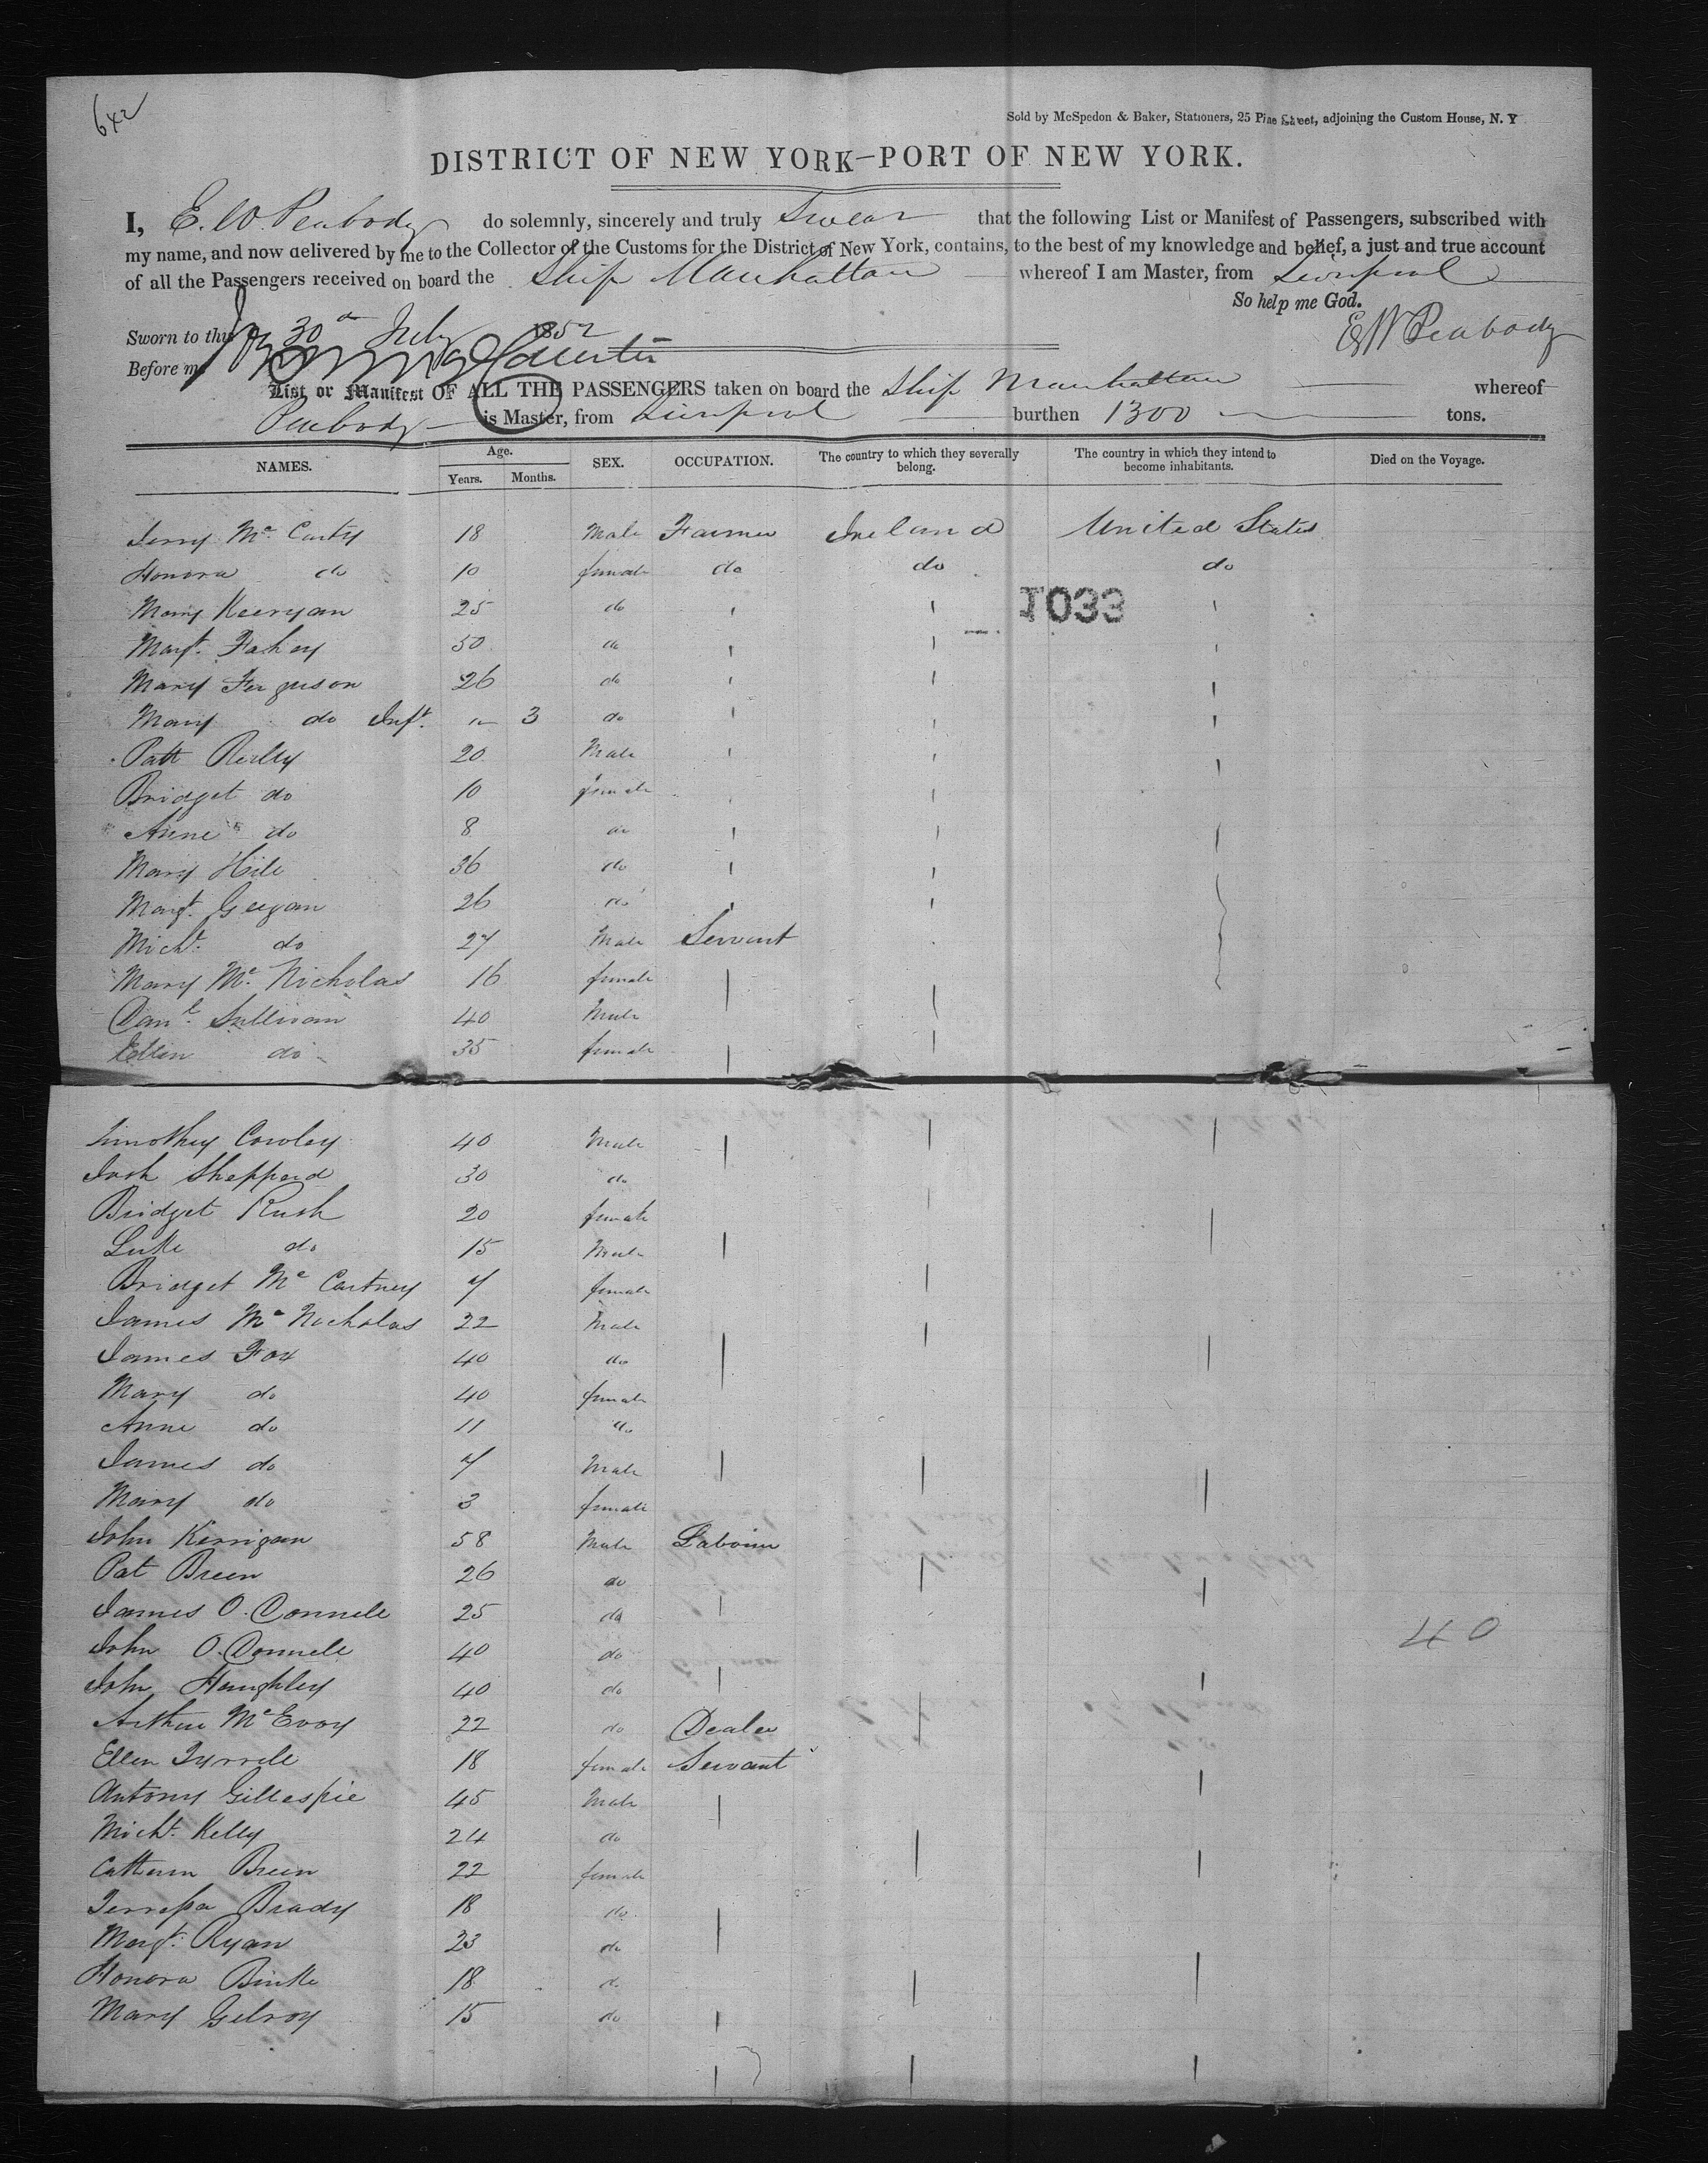 642
Sold by McSpedon & Baker, Stationers, 25 Pine Street, adjoining the Custom House, N. Y
DISTRICT OF NEW YORK—PORT OF NEW YORK.
I, E. W. Peabody do solemnly, sincerely and truly Swear that the following List or Manifest of Passengers, subscribed with
my name, and now delivered by me to the Collector of the Customs for the District of New York, contains, to the best of my knowledge and belief, a just and true account
of all the Passengers received on board the Ship Manhattan whereof I am Master, from Liverpool
So help me God.
Sworn to this 30 July 1852 E W Peabody
Before me
List or Manifest OF ALL THE PASSENGERS taken on board the Ship Manhattan whereof
Peabody is Master, from Liverpool burthen 1300 tons.
NAMES. Age. Years. Months. SEX. OCCUPATION. The country to which they severally belong. The country in which they intend to become inhabitants. Died on the Voyage.
Jerry Mc Carty 18 Male Farmer Ireland United States
Honora do 10 female do do do
1033
Mary Keeryan 25 do
Margt. Fahey 50 do
Mary Ferguson 26 do
Mary do Inft. 3 do
Patt Reilly 20 Male
Bridget do 10 female
Anne do 8 do
Mary Hile 36 do
Margt. Geegan 26 do
Michl. do 27 Male Servant
Mary Mc Nicholas 16 female
Danl. Sullivan 40 Male
Ellen do 35 female
Timothy Cowley 40 Male
Josh Shepperd 30 do
Bridget Rush 20 female
Luke do 15 Male
Bridget Mc Cartney 7 female
James Mc Nicholas 22 Male
James Fox 40 do
Mary do 40 female
Anne do 11 do
James do 7 Male
Mary do 3 female
John Kerrigan 58 Male Labourer
Pat Breen 26 do
James O. Connell 25 do
John O. Donnell 40 do
40
John Haughley 40 do
Arthur McEvoy 22 do Dealer
Ellen Tyrrell 18 female Servant
Antony Gillespie 45 Male
Michl. Kelly 24 do
Cathern Breen 22 female
Terressa Brady 18 do
Margt. Ryan 23 do
Honora Burke 18 do
Mary Gilroy 15 do